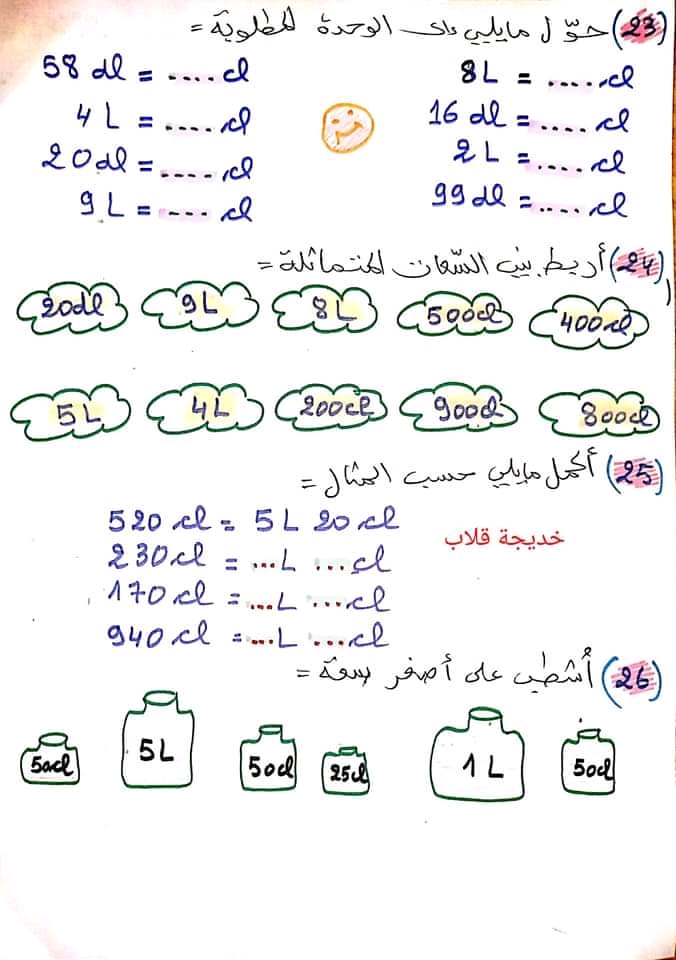 (23) حوّل مايلي إلى الوحدة المطلوبة =
8L = ..... cl
58 dl = ..... cl
16 dl = ..... cl
4 L = ..... cl
2 L = ..... cl
20dl = ..... cl
99 dl = ..... cl
9 L = .... cl
(24) أربط بين السّعات المتماثلة =
20dl 9L 8L 500cl 400cl
5L 4L 200cl 900cl 800cl
(25) أكمل مايلي حسب المثال =
520 cl = 5 L 20 cl
خديجة قلاب
230 cl = ...L ...cl
170 cl = ...L ...cl
940 cl = ...L ...cl
(26) أشطب على أصغر سعة =
50cl 5L 50cl 25cl 1L 50cl